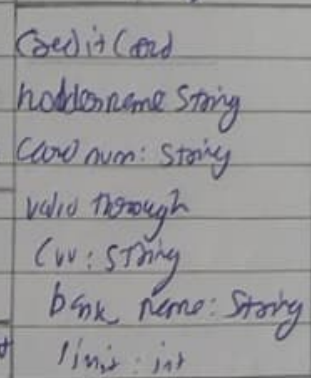 Credit Card
holdername String
Card num: String
valid through
Cvv: String
bank name: String
limit: int